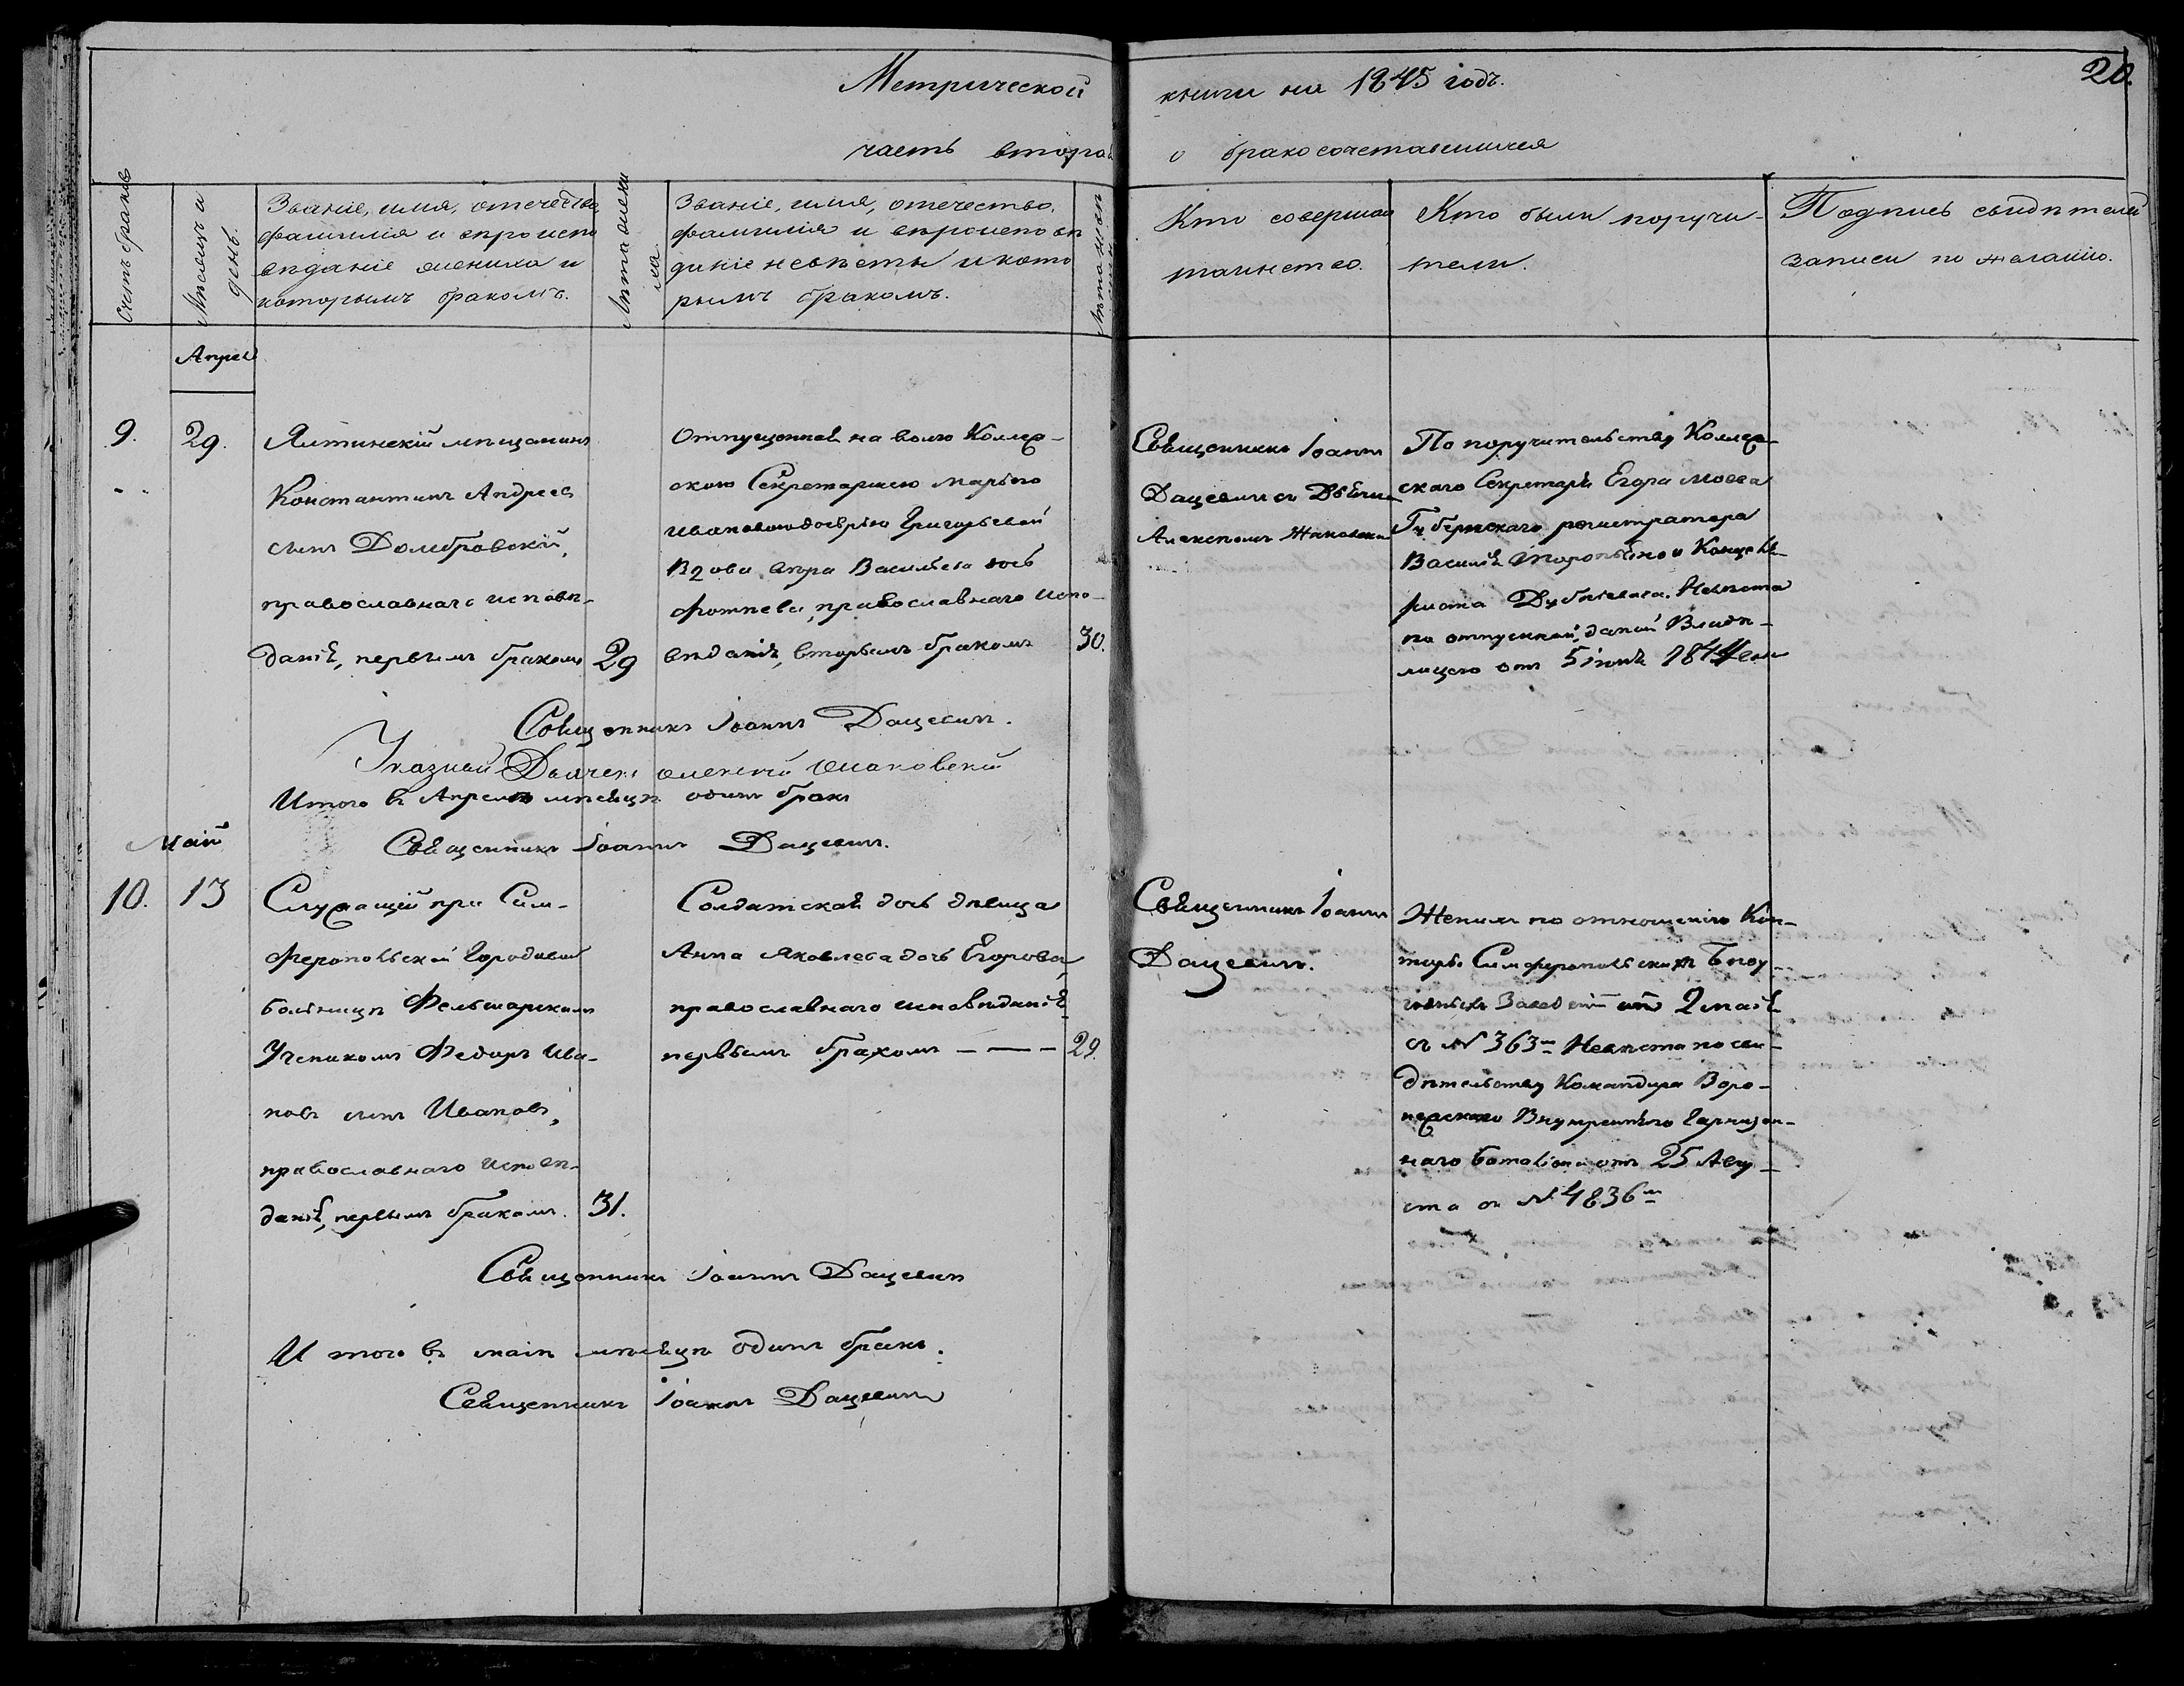 Метрической
часть вторая
книги на 1845 годъ.
о бракосочетавшихся
20.
Счетъ браковъ
Мѣсяцъ и день.
Званіе, имя, отечество,
фамилія и вѣроиспо
вѣданіе жениха и
которымъ бракомъ.
Лѣта жени
ха
Званіе, имя, отечество,
фамилія и вѣроисповѣ
даніе невѣсты и кото
рымъ бракомъ.
Лѣта невѣ
Кто совершал
таинство.
Кто были поручи-
тели.
Подпись свидѣтелей
записи по желанію.
Апрел
9.
29.
Ялтинскій мѣщанинъ
Константинъ Андреевъ
сынъ Домбровскій,
православнаго исповѣ-
данія, первымъ бракомъ
29
Отпущенная на волю Коллеж-
скою Секретаршею Марьею
Ивановою дочерью Григорьевой
Вдова Васильева дочь
православнаго испо-
вѣданія, вторымъ бракомъ
30.
Священникъ Іоаннъ
Дацевичъ съ Дьячкомъ
По поручительству Коллеж-
скаго Секретаря Егора
Губернскаго регистратора
Василія и Канцеля-
риста Невѣста
по отпускной, данной Владѣ-
лицею отъ 5 іюня 1844
Священникъ Іоаннъ Дацевичъ.
Указный Дьячекъ
Итого въ Апрелѣ мѣсяцѣ одинъ бракъ
Священникъ Іоаннъ Дацевичъ.
Май
10.
13
Служащій при Сим-
феропольской Городовой
больницѣ Фельшарскимъ
Ученикомъ Федоръ Ива-
новъ сынъ Ивановъ,
православнаго исповѣ-
данія, первымъ бракомъ.
31.
Солдатская дочь дѣвица
Анна Яковлева дочь Егорова,
православнаго исповѣданія
первымъ бракомъ — — —
29.
Священникъ Іоаннъ
Дацевичъ.
Женихъ по отношенію Кон-
торы Симферопольскихъ Богоу-
годныхъ Заведеній отъ 2 маія
съ № 363м Невѣста по сви-
дѣтельству Командира Воро-
нежскаго Внутренняго Гарнизон-
наго баталіона отъ 25 Авгу-
ста съ № 4836м
Священникъ Іоаннъ Дацевичъ
Итого въ маіѣ мѣсяцѣ одинъ бракъ.
Священникъ Іоаннъ Дацевичъ